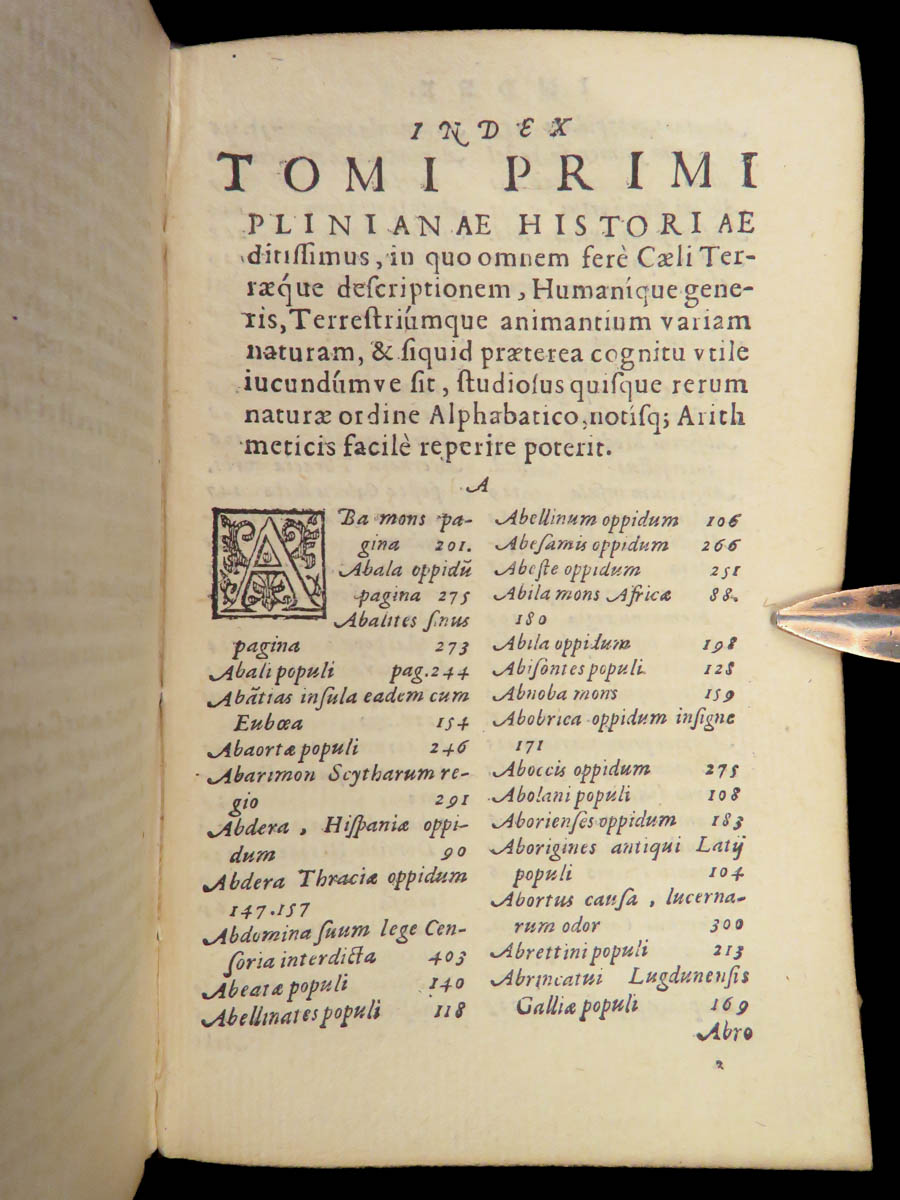 INDEX
TOMI PRIMI
PLINIANAE HISTORIAE
ditiſſimus, in quo omnem ferè Cæli Ter-
ræq́ue deſcriptionem, Humaníque gene-
ris, Terreſtriúmque animantium variam
naturam, & ſiquid præterea cognitu vtile
iucundúmve ſit, ſtudioſus quiſque rerum
naturæ ordine Alphabatico, notiſq; Arith
meticis facilè reperire poterit.
A
ABa mons pa-
gina 201.
Abala oppidū
pagina 275
Abalites ſinus
pagina 273
Abali populi pag.244
Abātias inſula eadem cum
Eubœa 154
Abaortæ populi 246
Abarimon Scytharum re-
gio 291
Abdera, Hiſpaniæ oppi-
dum 90
Abdera Thraciæ oppidum
147.157
Abdomina ſuum lege Cen-
ſoria interdicta 403
Abeatæ populi 140
Abellinates populi 118
Abellinum oppidum 106
Abeſamis oppidum 266
Abeſte oppidum 251
Abila mons Africæ 88.
180
Abila oppidum 198
Abiſontes populi 128
Abnoba mons 159
Abobrica oppidum inſigne
171
Aboccis oppidum 275
Abolani populi 108
Aborienſes oppidum 183
Aborigines antiqui Latij
populi 104
Abortus cauſa, lucerna-
rum odor 300
Abrettini populi 213
Abrincatui Lugdunenſis
Galliæ populi 169
Abro
2